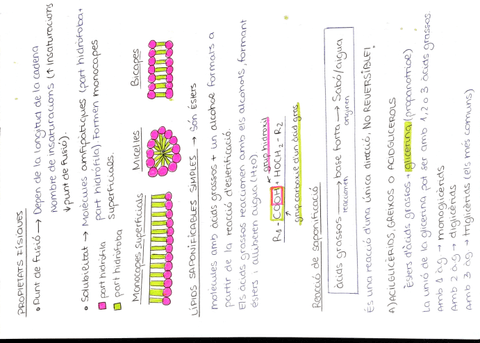 PROPIETATS FÍSIQUES
• Punt de Fusió → Depen de la longitud de la cadena
Nombre de insaturacions (↑ insaturacions
↓ punt de fusió).
• Solubilitat → Molècules amfipàtiques (part hidròfoba +
part hidròfila) formen monocapes
superficials.
part hidròfila
part hidròfoba
Monocapes Superficials
Micel·les
Bicapes
LÍPIDS SAPONIFICABLES SIMPLES → són Èsters
molècules amb àcids grassos + un alcohol formats a
partir de la reacció d'esterificació.
Els àcids grassos reaccionen amb els alcohols, formant
esters i alliberen aigua (H2O)
grup hidroxil
R1 - COOH + HOCH2 - R2
grup carboxil d'un àcid gras
Reacció de saponificació
àcids grassos → base forta → Sabó/aigua
reaccionen
originen
És una reacció d'una única direcció. NO REVERSIBLE!
A) ACILGLICERIDS, GREIXOS O ACIGLICEROLS
Èsters d'àcids grassos + glicerina (propanotriol)
La unió de la glicerina pot ser amb 1, 2 o 3 àcids grassos.
Amb 1 à.g → monoglicèrids
Amb 2 à.g → diglicèrids
Amb 3 à.g → triglicèrids (els més comuns)